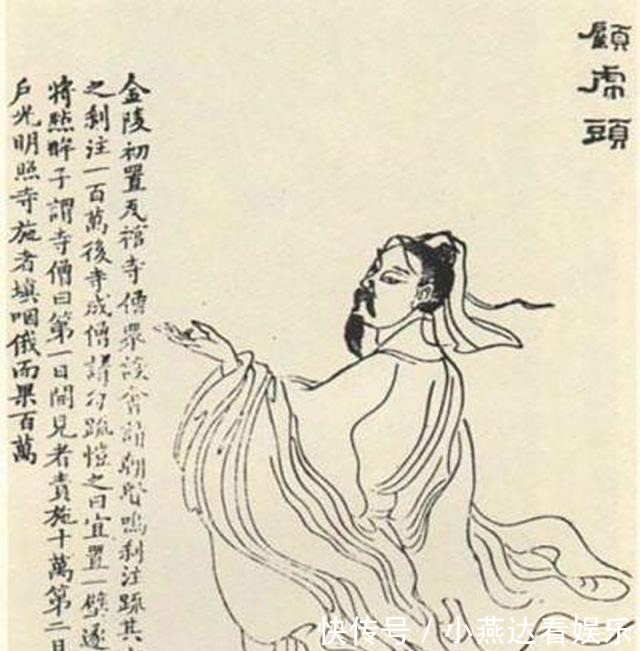 顧虎頭
金陵初置瓦棺寺僧眾設會請朝賢鳴刹注疏其
之刹注一百萬後寺成僧請勾疏愷之曰宜置一壁遂
將點眸子謂寺僧曰第一日開見者責施十萬第二日
戶光明照寺施者填咽俄而果百萬
快传号/小燕达看娱乐